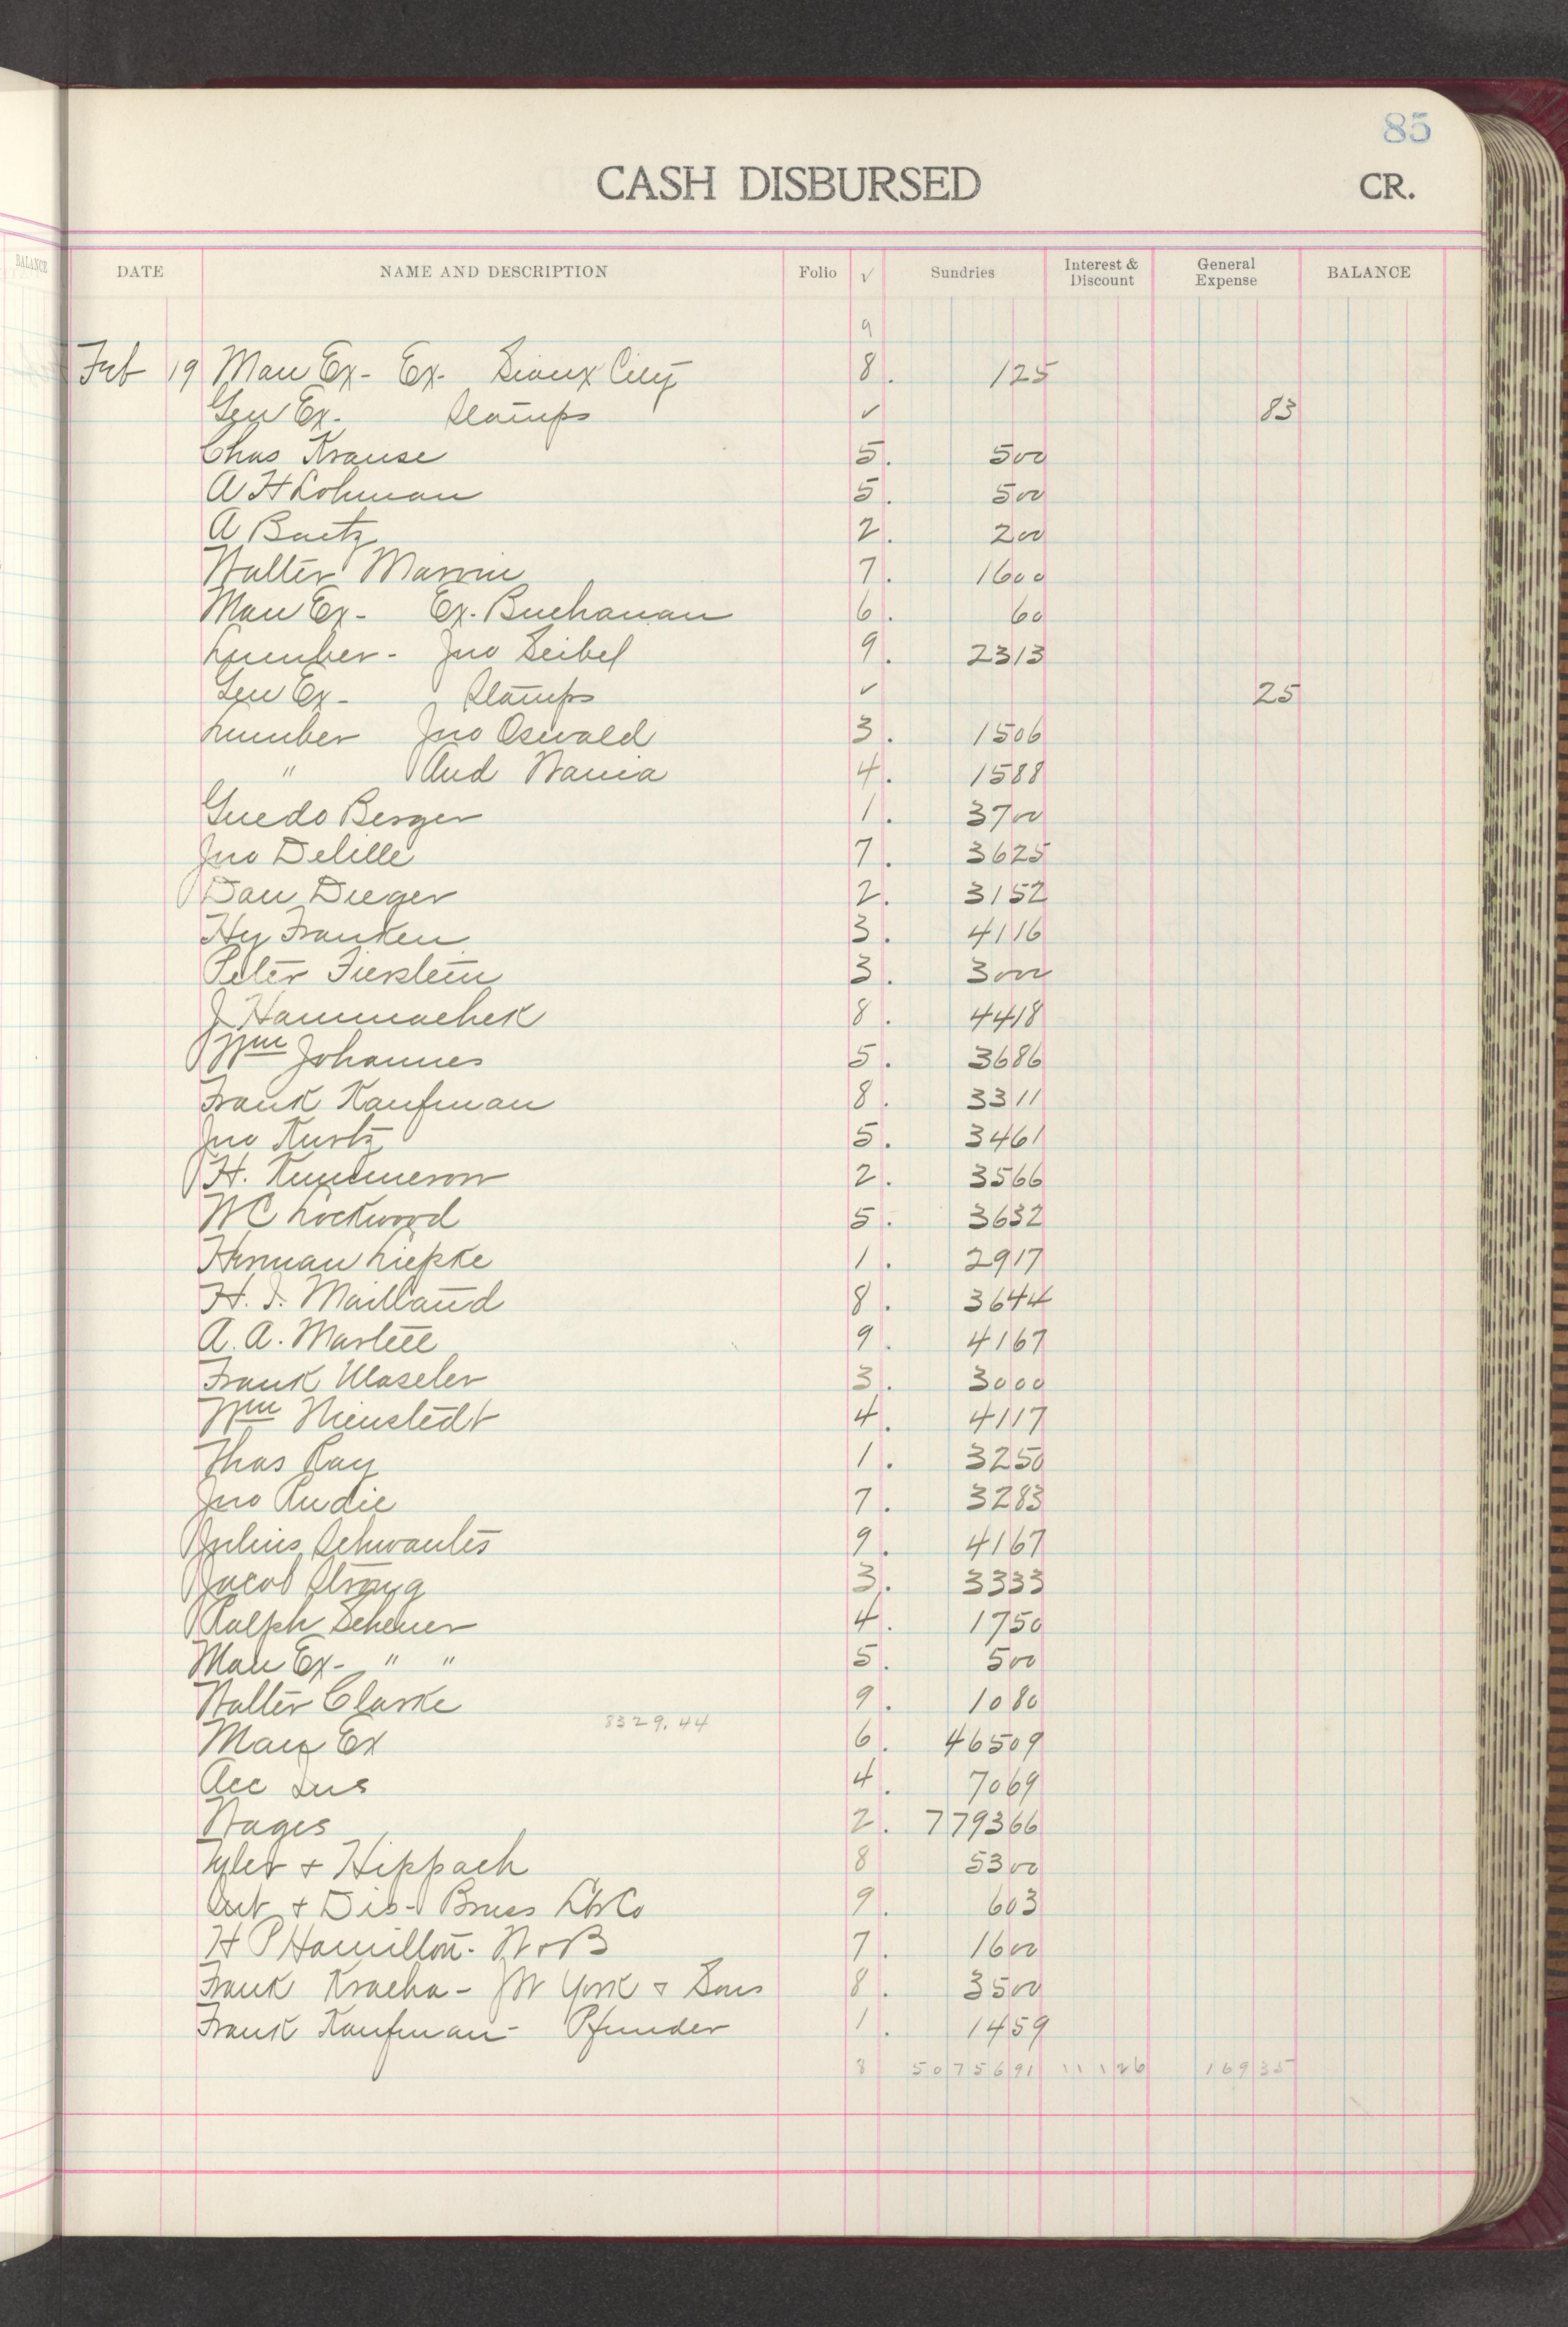 85
CASH DISBURSED CR.
BALANCE
DATE NAME AND DESCRIPTION Folio √ Sundries Interest & Discount General Expense BALANCE
9
Feb 19 Man Ex- Ex- Sioux City 8. 125
Gen Ex- Stamps ✓ 83
Chas Krause 5. 500
A H Lohman 5. 500
A Baetz 2. 200
Walter Marvin 7. 1600
Man Ex- Ex. Buchanan 6. 60
Lumber- Jno Seibel 9. 2313
Gen Ex- Stamps ✓ 25
Lumber Jno Oswald 3. 1506
" And Wania 4. 1588
Guedo Berger 1. 3700
Jno Delille 7. 3625
Dan Dieger 2. 3152
Hy Franken 3. 4116
Peter Fierstein 3. 3000
J Hammachek 8. 4418
Wm Johannes 5. 3686
Frank Kaufman 8. 3311
Jno Kurtz 5. 3461
H. Kummerow 2. 3566
W C Lockwood 5. 3632
Herman Liepke 1. 2917
H. I. Maitland 8. 3644
A. A. Martell 9. 4167
Frank Maseler 3. 3000
Wm Nienstedt 4. 4117
Thos Ray 1. 3250
Jno Rudie 7. 3283
Julius Schwantes 9. 4167
Jacob Strong 3. 3333
Ralph Scheuer 4. 1750
Man Ex- " " 5. 500
Walter Clarke 9. 1080
8329.44
Man Ex 6. 46509
Acc Ins 4. 7069
Wages 2. 779366
Tyler & Hippach 8 5300
Int & Dis- Bruss Lbr Co 9. 603
H P Hamilton- W & B 7. 1600
Frank Kracha- JW York & Sons 8. 3500
Frank Kaufman- Pfunder 1. 1459
8 5075691 11126 16935